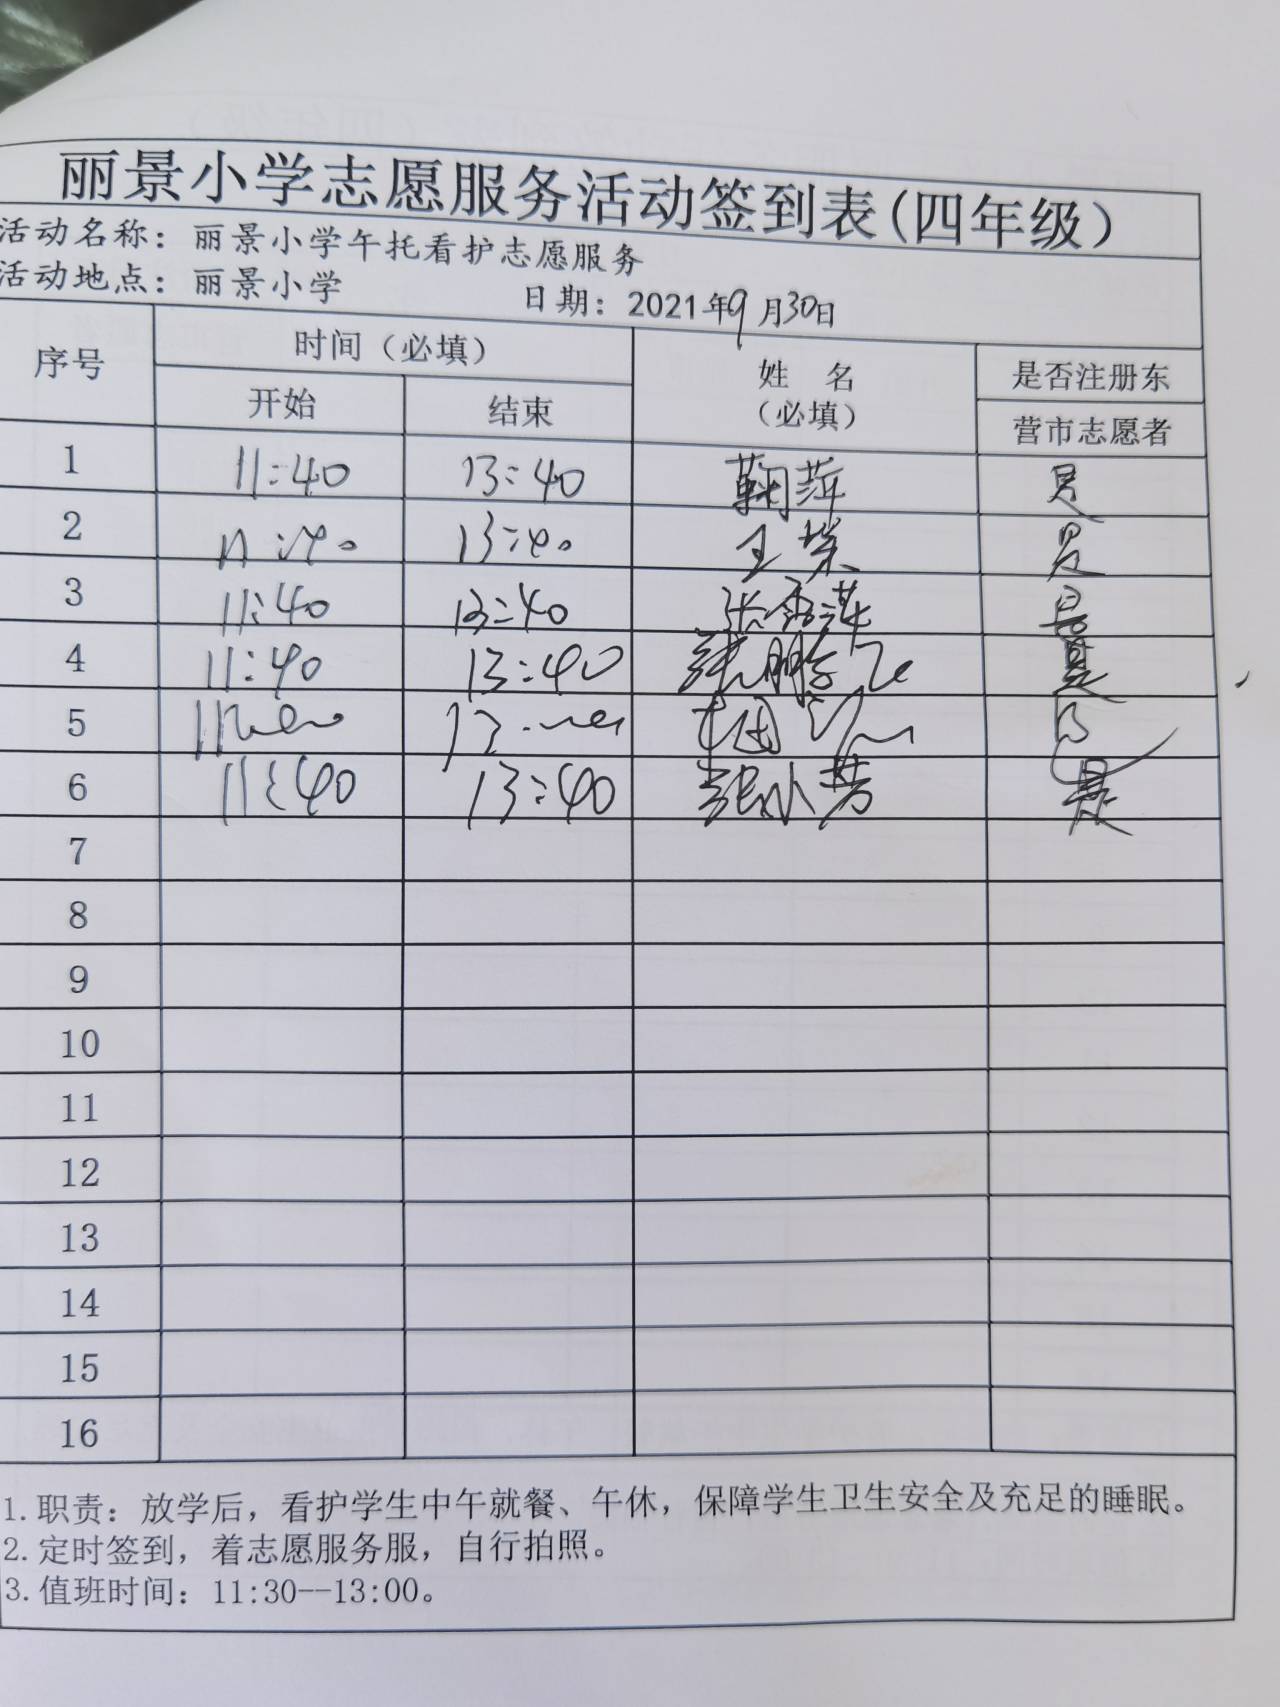 丽景小学志愿服务活动签到表(四年级)
活动名称：丽景小学午托看护志愿服务
活动地点：丽景小学 日期：2021年9月30日
序号 时间（必填） 姓 名（必填） 是否注册东营市志愿者
开始 结束
1 11:40 13:40 鞠萍 是
2 11:40 13:40 王 是
3 11:40 13:40 张 是
4 11:40 13:40 张鹏飞 是
5
6 11:40 13:40 张小芳 是
7
8
9
10
11
12
13
14
15
16
1.职责：放学后，看护学生中午就餐、午休，保障学生卫生安全及充足的睡眠。
2.定时签到，着志愿服务服，自行拍照。
3.值班时间：11:30--13:00。